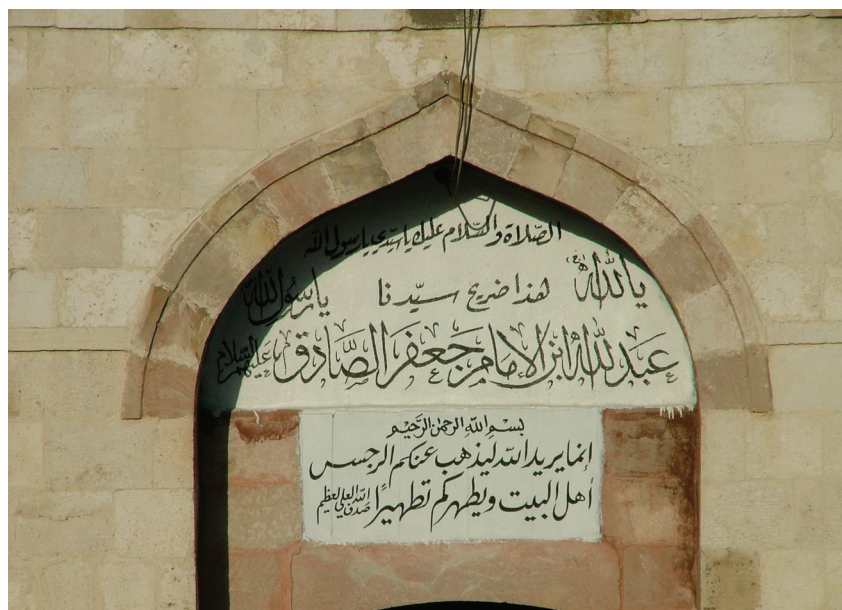 الصلاة والسلام عليك يا سيدي يا رسول الله
يا الله هذا ضريح سيّدنا يا رسول الله
عبد الله ابن الإمام جعفر الصّادق عليهم السلام
بسم الله الرحمن الرحيم
إنما يريد الله ليذهب عنكم الرجس
أهل البيت ويطهركم تطهيرًا صدق الله العلي العظيم